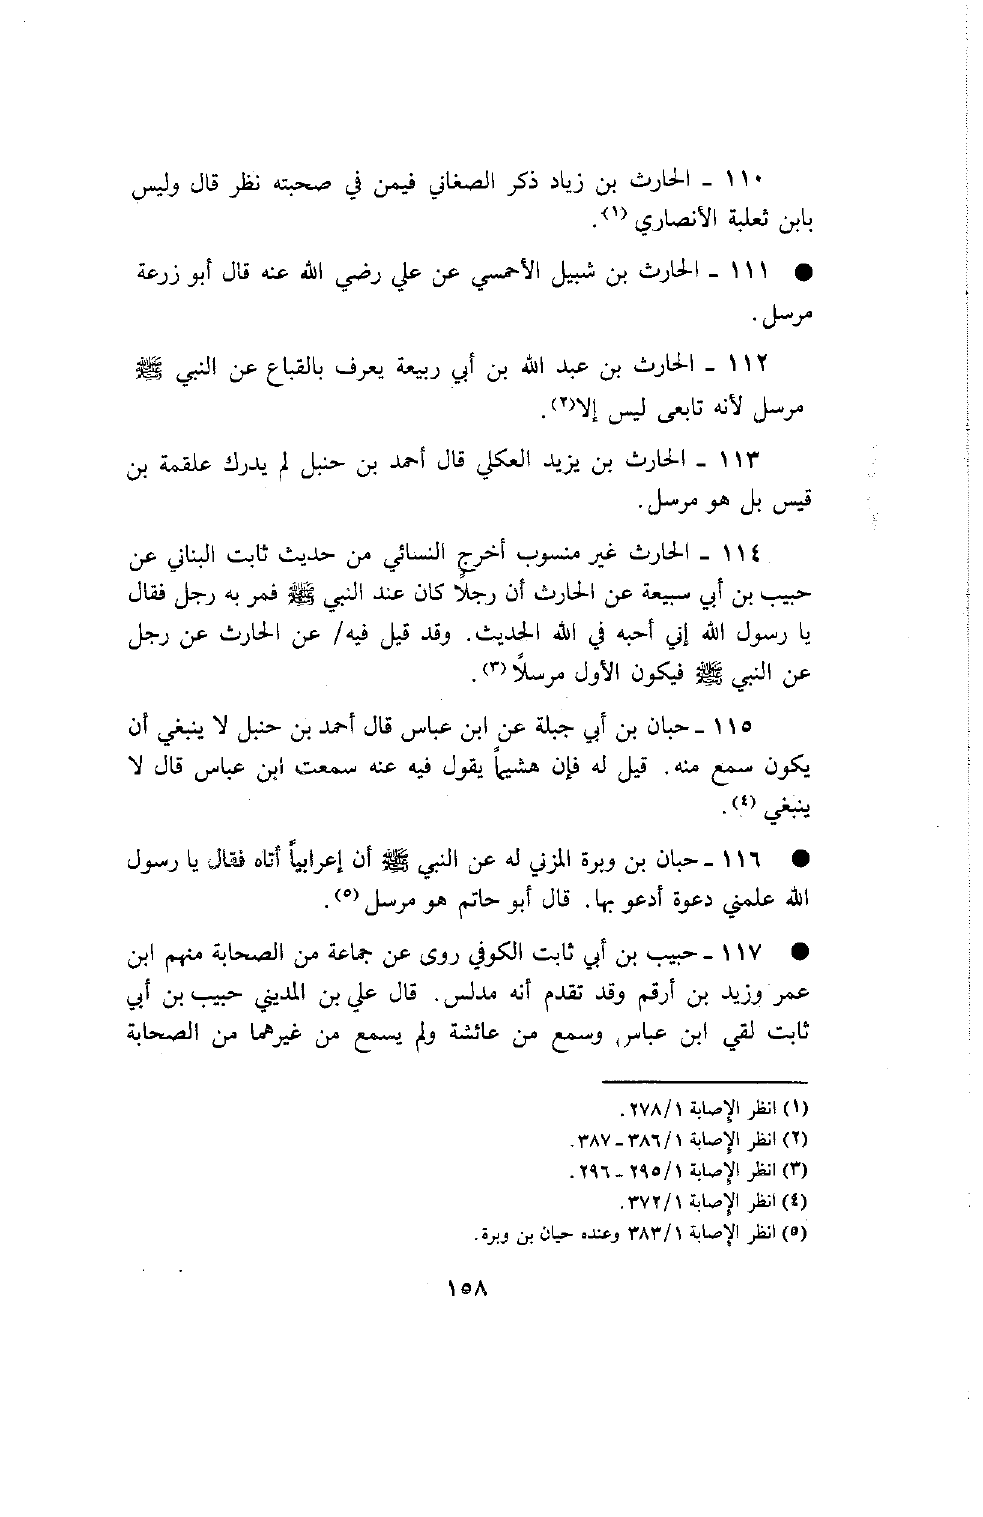 ١١٠ ـ الحارث بن زياد ذكر الصغاني فيمن في صحبته نظر قال وليس
بابن ثعلبة الأنصاري (١).
● ١١١ ـ الحارث بن شبيل الأحمسي عن علي رضي الله عنه قال أبو زرعة
مرسل.
١١٢ ـ الحارث بن عبد الله بن أبي ربيعة يعرف بالقباع عن النبي ﷺ
مرسل لأنه تابعى ليس إلا(٢).
١١٣ ـ الحارث بن يزيد العكلي قال أحمد بن حنبل لم يدرك علقمة بن
قيس بل هو مرسل.
١١٤ ـ الحارث غير منسوب أخرج النسائي من حديث ثابت البناني عن
حبيب بن أبي سبيعة عن الحارث أن رجلاً كان عند النبي ﷺ فمر به رجل فقال
يا رسول الله إني أحبه في الله الحديث. وقد قيل فيه/ عن الحارث عن رجل
عن النبي ﷺ فيكون الأول مرسلاً (٣).
١١٥ ـ حبان بن أبي جبلة عن ابن عباس قال أحمد بن حنبل لا ينبغي أن
يكون سمع منه. قيل له فإن هشيماً يقول فيه عنه سمعت ابن عباس قال لا
ينبغي (٤).
● ١١٦ ـ حبان بن وبرة المزني له عن النبي ﷺ أن إعرابياً أتاه فقال يا رسول
الله علمني دعوة أدعو بها. قال أبو حاتم هو مرسل (٥).
● ١١٧ ـ حبيب بن أبي ثابت الكوفي روى عن جماعة من الصحابة منهم ابن
عمر وزيد بن أرقم وقد تقدم أنه مدلس. قال علي بن المديني حبيب بن أبي
ثابت لقي ابن عباس، وسمع من عائشة ولم يسمع من غيرهما من الصحابة
(١) انظر الإصابة ٢٧٨/١.
(٢) انظر الإصابة ٣٨٦/١ ـ ٣٨٧.
(٣) انظر الإصابة ٢٩٥/١ ـ ٢٩٦.
(٤) انظر الإصابة ٣٧٢/١.
(٥) انظر الإصابة ٣٨٣/١ وعنده حيان بن وبرة.
١٥٨